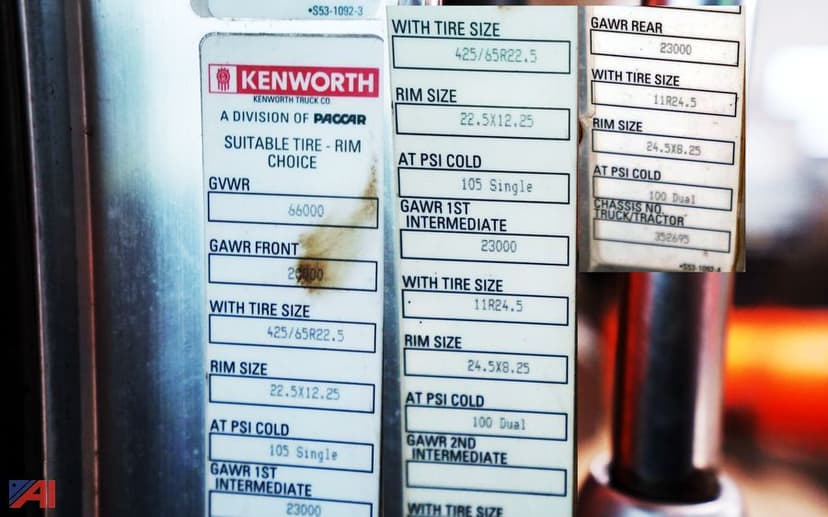 •S53-1092-3
KENWORTH
KENWORTH TRUCK CO.
A DIVISION OF PACCAR
SUITABLE TIRE - RIM
CHOICE
GVWR
66000
GAWR FRONT
20000
WITH TIRE SIZE
425/65R22.5
RIM SIZE
22.5X12.25
AT PSI COLD
105 Single
GAWR 1ST
INTERMEDIATE
23000
WITH TIRE SIZE
425/65R22.5
RIM SIZE
22.5X12.25
AT PSI COLD
105 Single
GAWR 1ST
INTERMEDIATE
23000
WITH TIRE SIZE
11R24.5
RIM SIZE
24.5X8.25
AT PSI COLD
100 Dual
GAWR 2ND
INTERMEDIATE
WITH TIRE SIZE
GAWR REAR
23000
WITH TIRE SIZE
11R24.5
RIM SIZE
24.5X8.25
AT PSI COLD
100 Dual
CHASSIS NO.
TRUCK/TRACTOR
352695
•S53-1092-4
AI